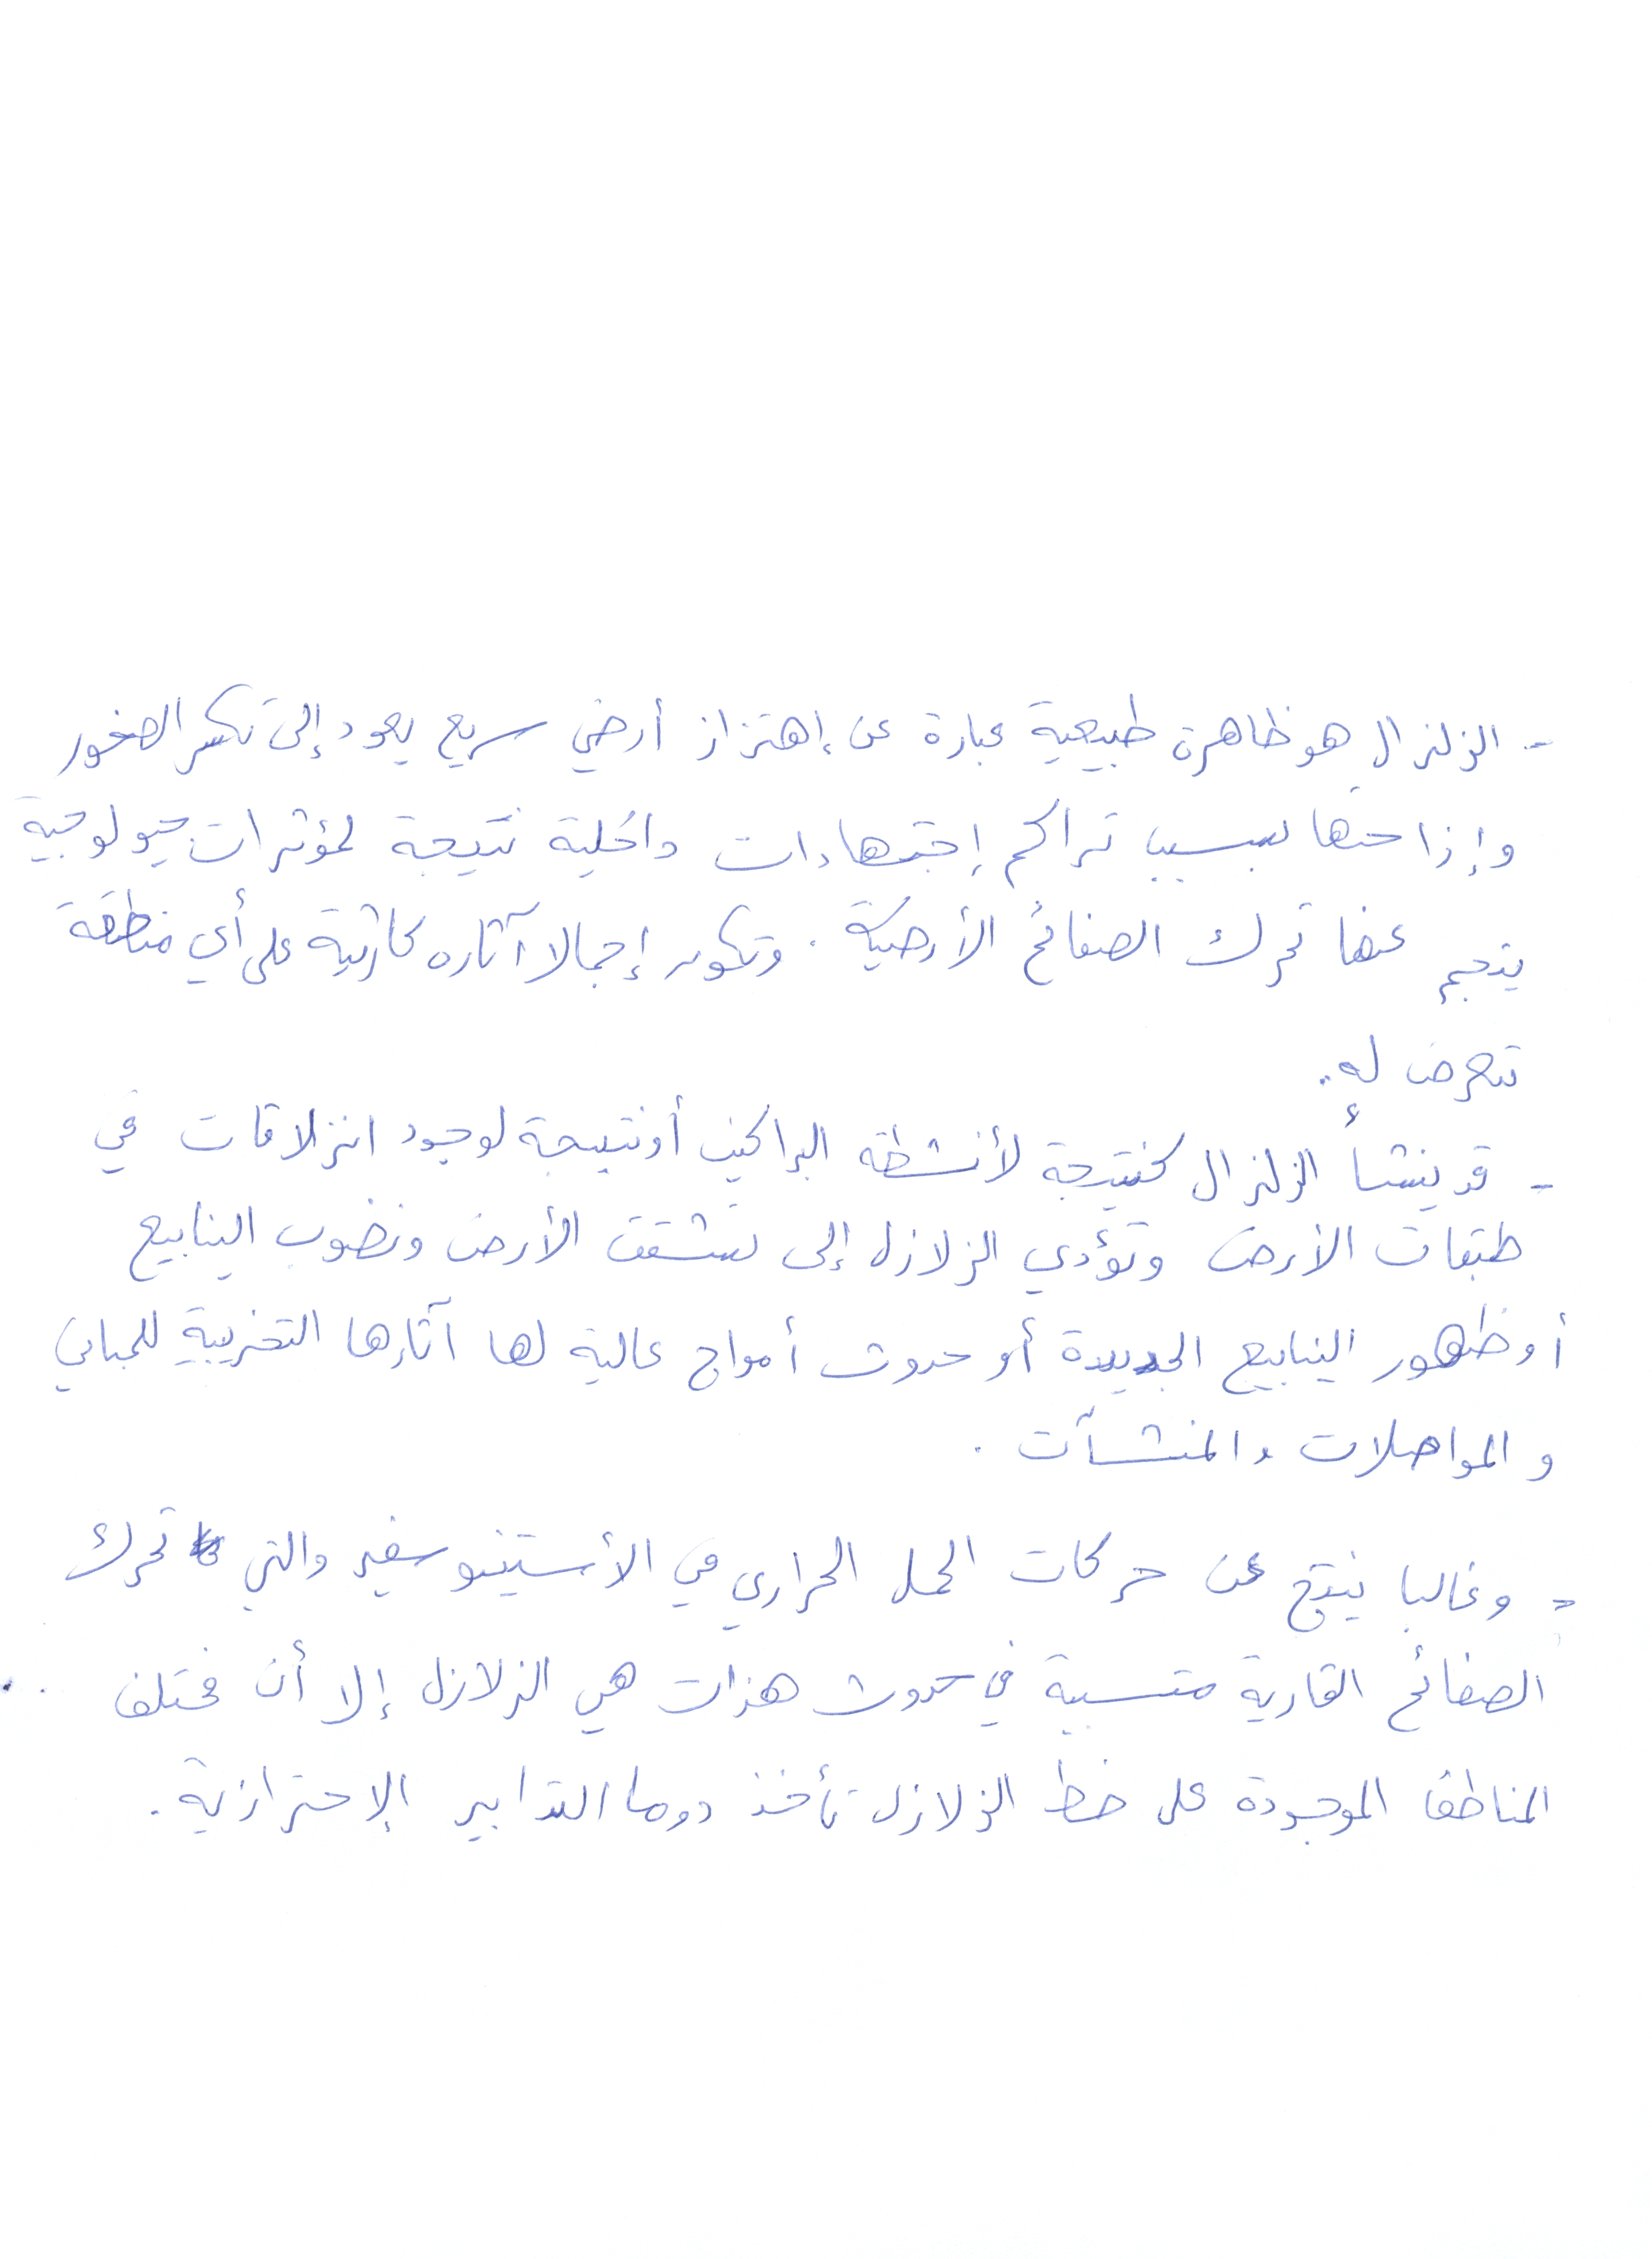 - الزلزال هو ظاهرة طبيعية عبارة عن إهتزاز أرضي سريع يعود إلى تكسر الصخور
وإزاحتها بسبب تراكم إجتهادات داخلية نتيجة لمؤثرات جيولوجية
ينجم عنها تحرك الصفائح الأرضية. وتكون إجمالا آثاره كارثية على أي منطقة
تتعرض له.
- قد ينشأ الزلزال كنتيجة لأنشطة البراكين أو نتيجة لوجود انزلاقات في
طبقات الأرض وتؤدي الزلازل إلى تشقق الأرض ونضوب الينابيع
أو ظهور الينابيع الجديدة أو حدوث أمواج عالية لها آثارها التخريبية للمباني
و المواصلات والمنشآت.
- وغالبا ينتج عن حركات الحمل الحراري في الأستينوسفير والتي تحرك
الصفائح القارية متسببة في حدوث هزات هي الزلازل إلا أن مختلف
المناطق الموجودة على خط الزلازل تأخذ دوما التدابير الإحترازية.